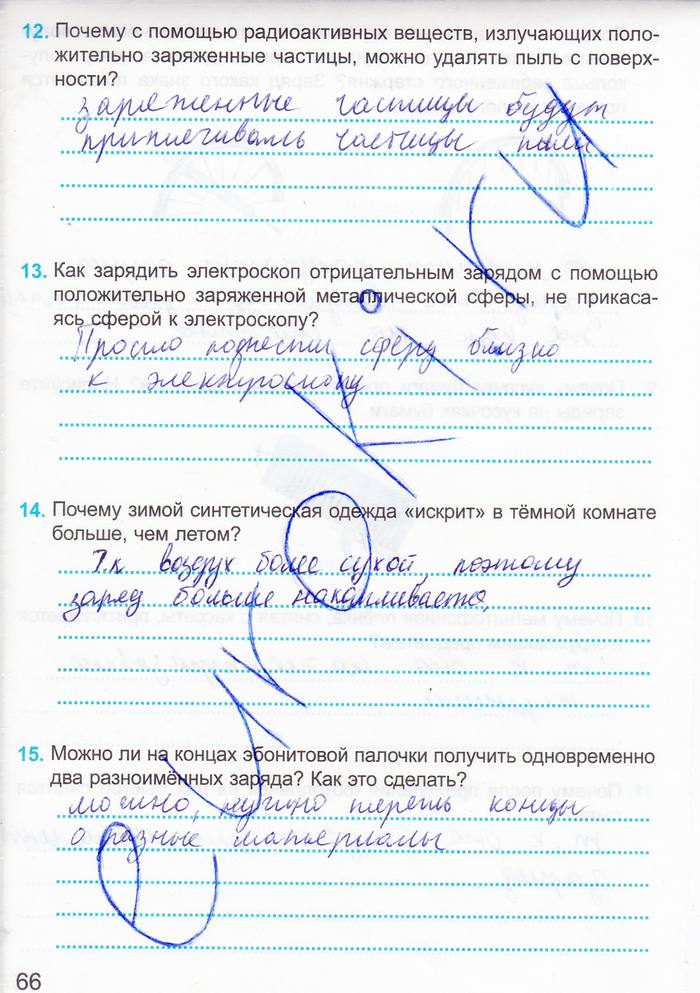 12. Почему с помощью радиоактивных веществ, излучающих поло-
жительно заряженные частицы, можно удалять пыль с поверх-
ности?
заряженные частицы будут
притягивать частицы пыли
13. Как зарядить электроскоп отрицательным зарядом с помощью
положительно заряженной металлической сферы, не прикаса-
ясь сферой к электроскопу?
Просто поднести сферу близко
к электроскопу
14. Почему зимой синтетическая одежда «искрит» в тёмной комнате
больше, чем летом?
Т.к воздух более сухой, поэтому
заряд больше накапливается,
15. Можно ли на концах эбонитовой палочки получить одновременно
два разноимённых заряда? Как это сделать?
можно, нужно тереть концы
о разные материалы
66